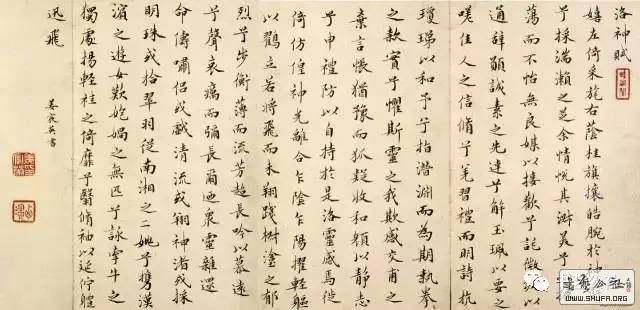 洛神賦
嬉左倚采旄右蔭桂旗攘皓腕於神
兮採湍瀨之芝余情悅其淑美兮
蕩而不怡無良媒以接歡兮託微波以
通辭願誠素之先達兮解玉珮以要之
嗟佳人之信脩兮羌習禮而明詩抗
瓊珶以和予兮指潛淵而為期執拳
之款實兮懼斯靈之我欺感交甫之
棄言悵猶豫而狐疑收和顏以靜志
兮申禮防以自持於是洛靈感焉徙
倚仿偟神光離合乍陰乍陽擢輕軀
以鶴立若將飛而未翔踐椒塗之郁
烈兮步衡薄而流芳超長吟以慕遠
兮聲哀厲而彌長爾迺衆靈雜遝
命儔嘯侶或戲清流或翔神渚或採
明珠或拾翠羽從南湘之二姚兮攜漢
濱之遊女歎匏媧之無匹兮詠牽牛之
獨處揚輕袿之倚靡兮翳脩袖以延佇體
迅飛
姜宸英書
WWW.SHUFA.ORG